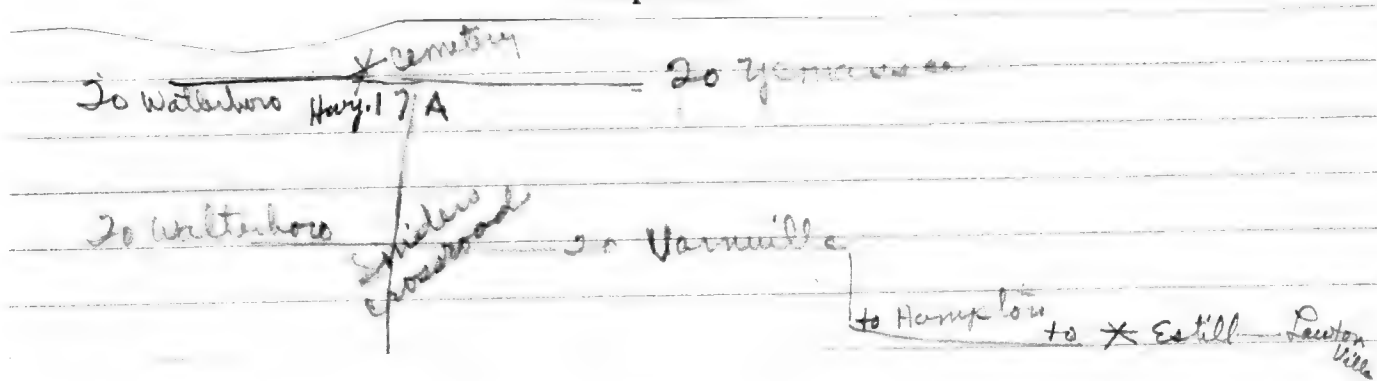 * Cemetery
To Walterboro Hwy. 17 A To Yemassee
To Walterboro Sniders crossroad To Varnville
to Hampton to * Estill Lawton Ville